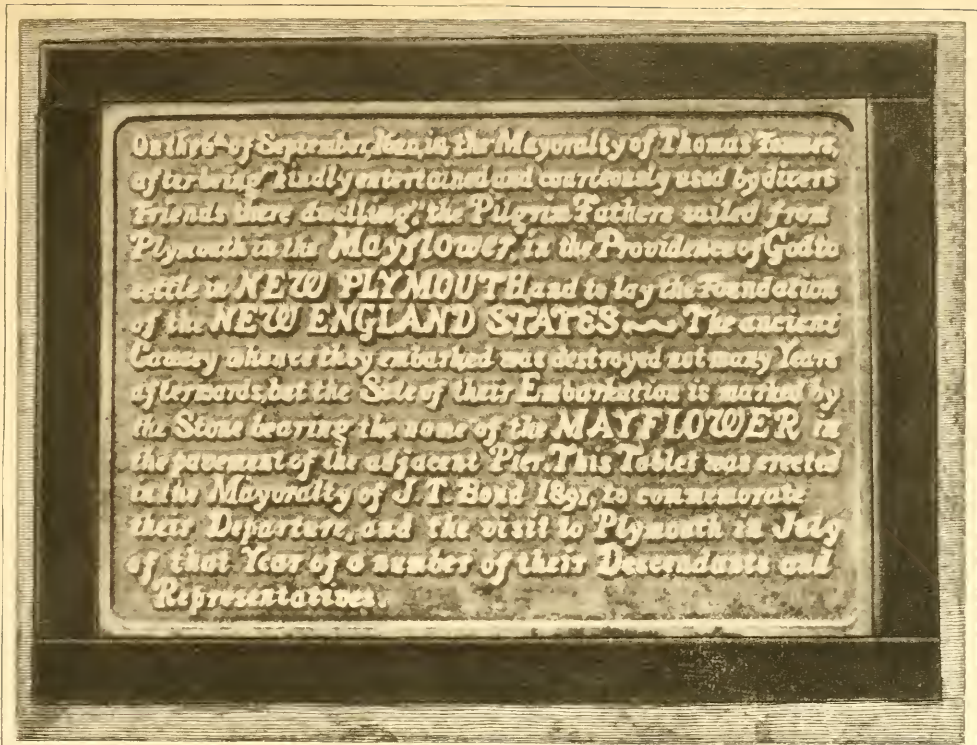 On the 6th of September, 1620, in the Mayoralty of Thomas Fownes,
after being "kindly entertained and courteously used by divers
Friends there dwelling", the Pilgrim Fathers sailed from
Plymouth in the Mayflower, in the Providence of God to
settle in NEW PLYMOUTH, and to lay the Foundation
of the NEW ENGLAND STATES ~~ The ancient
Causey whence they embarked was destroyed not many Years
afterwards, but the Site of their Embarkation is marked by
the Stone bearing the name of the MAYFLOWER in
the pavement of the adjacent Pier. This Tablet was erected
in the Mayoralty of J. T. Bond 1891, to commemorate
their Departure, and the visit to Plymouth in July
of that Year of a number of their Descendants and
Representatives.